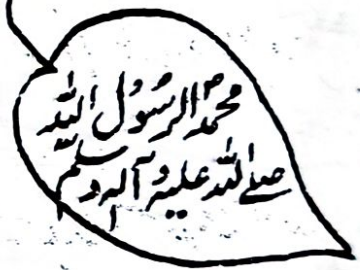 محمدؐ الرسُول اللہ
صلے اللہ علیہ وآلہٖ وسلم